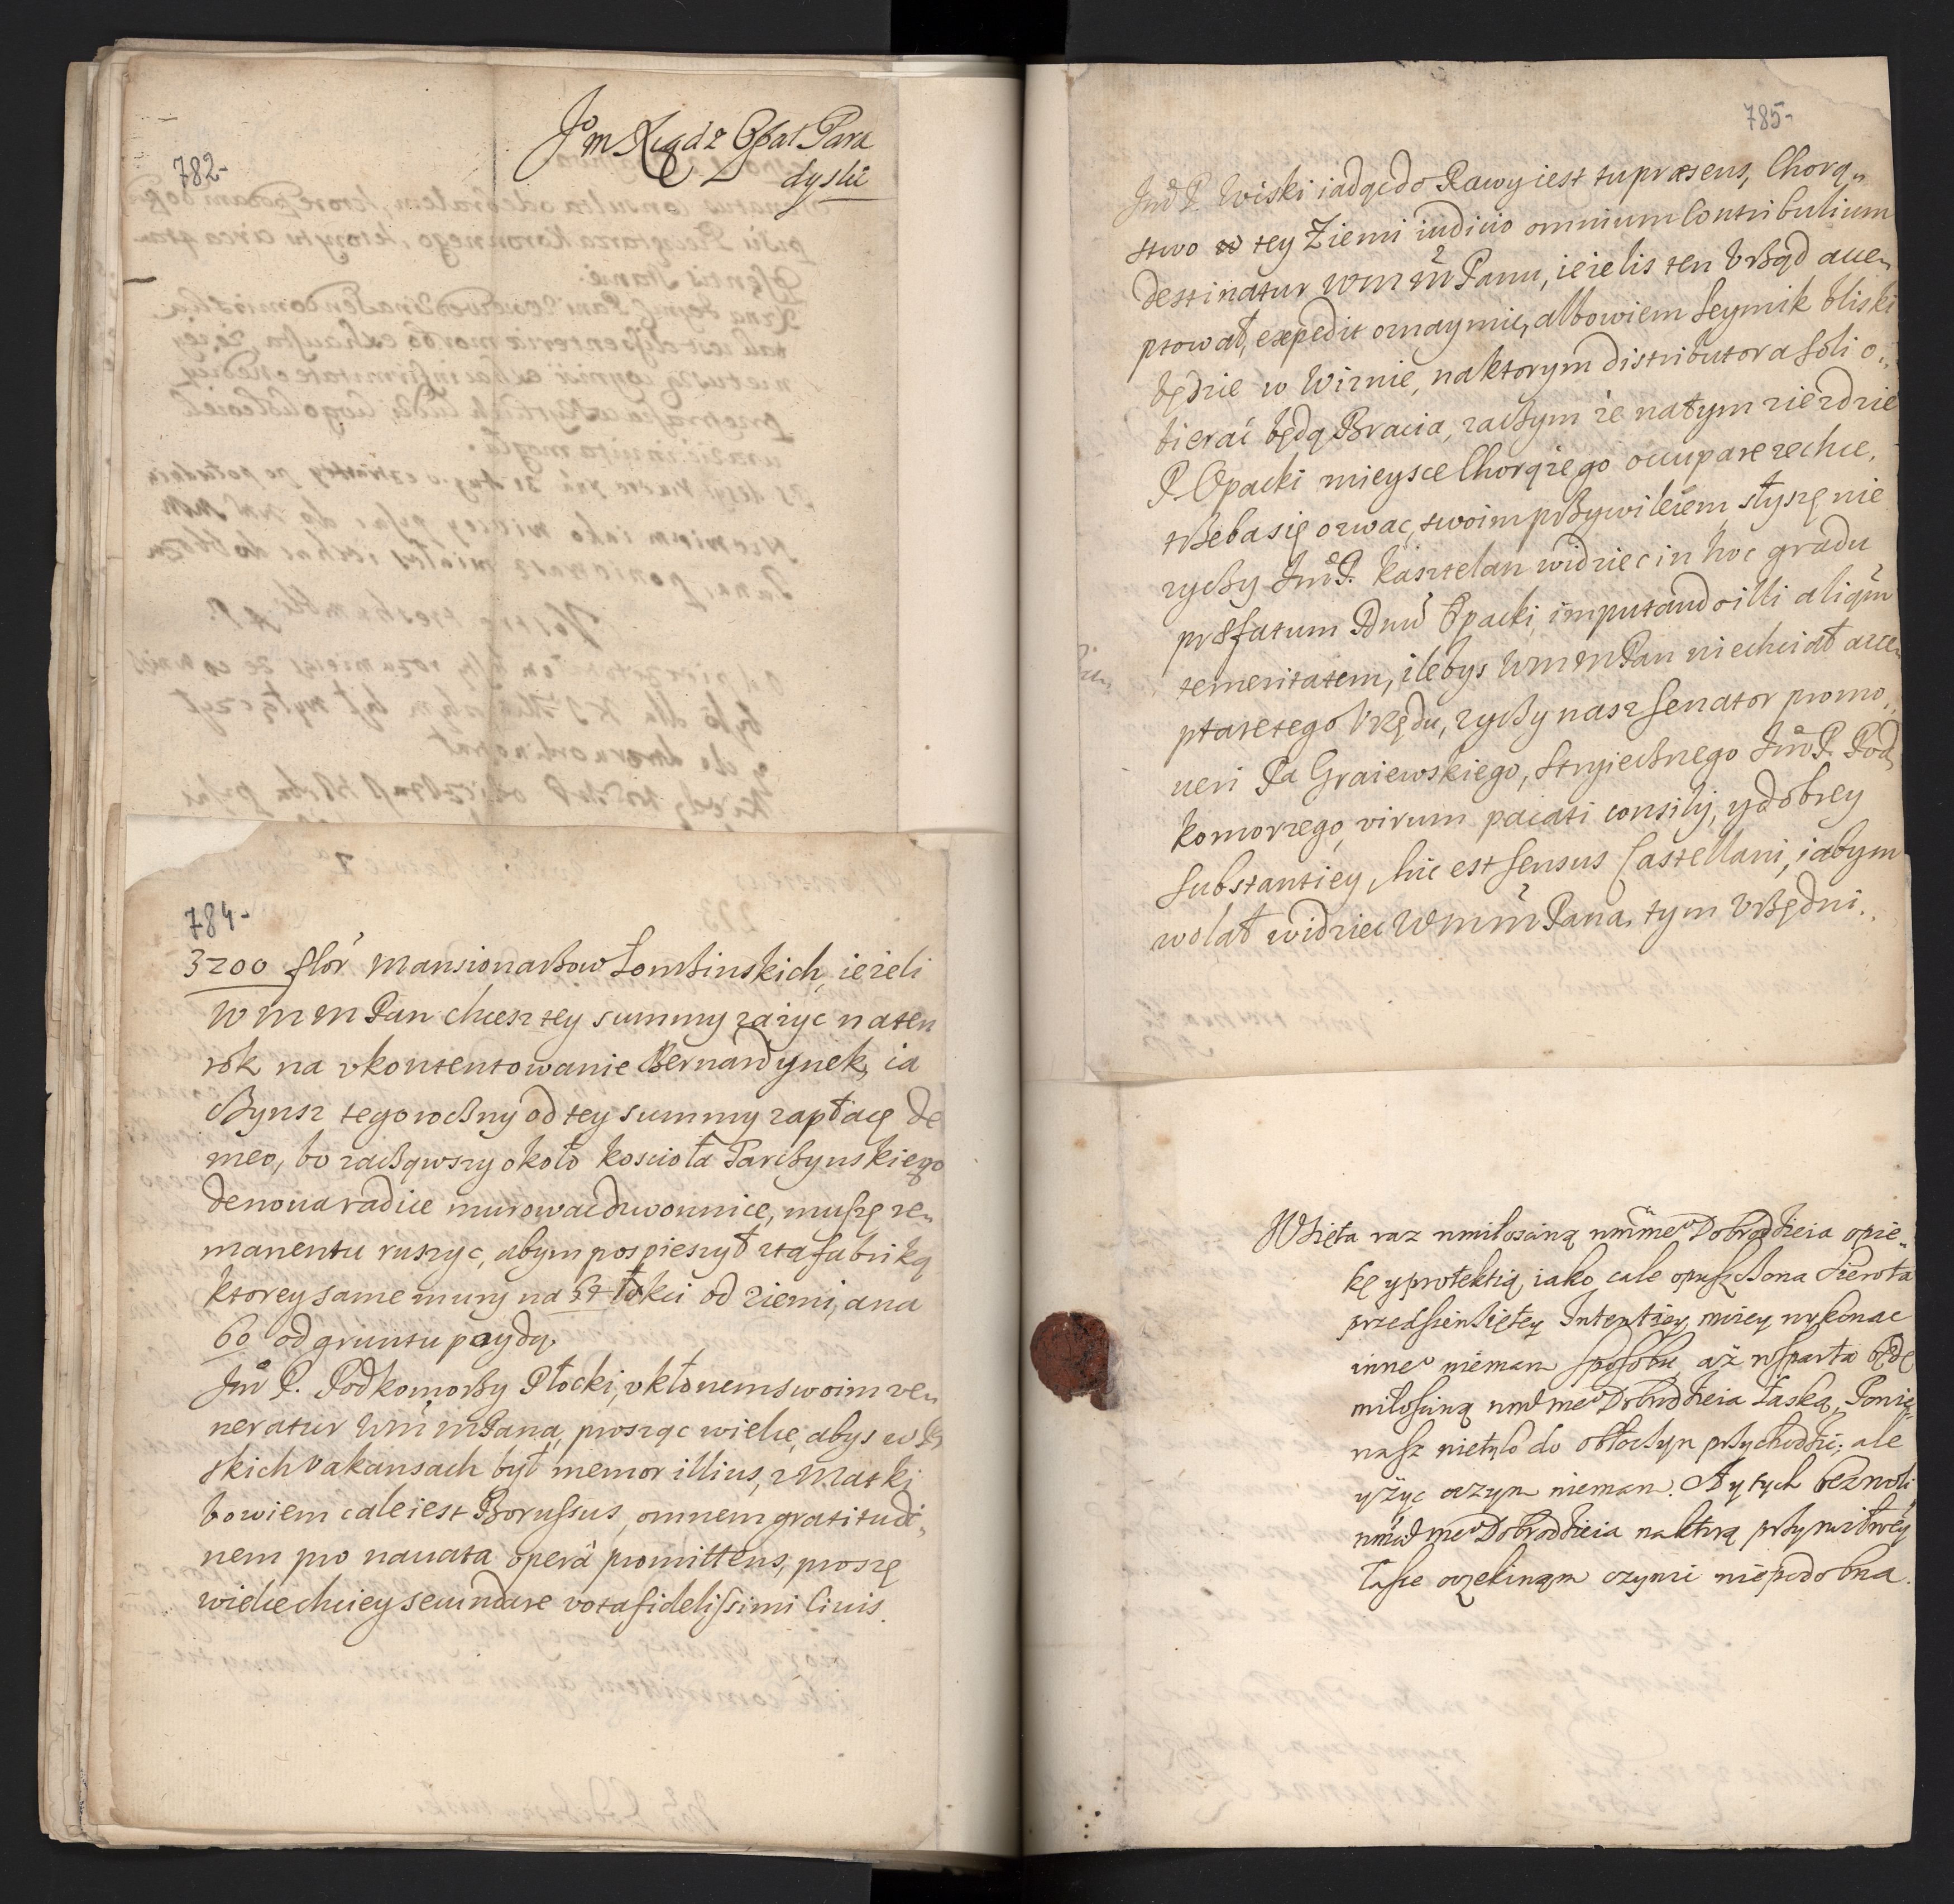 782-
Jom Xiądz Opat Para
dyski
784-
3200 flor Mansionarßow Łomßinskich, ieżeli
W M M Pan chcesz tey summy zażyc na ten
rok na vkontentowanie Bernardynek, ia
cßynsz tegorocßny od tey summy zapłacę de
meo, bo zacßąwszy około koscioła Parcßynskiego
de noua radice murowac dzwonnicę, muszę re„
manentu ruszyc, abym pospieszył z tą fabriką
ktorey same mury na 54 łokci od ziemi, a na
60 od gruntu poydą.
Jmo P. Podkomorßy Płocki, vkłonem swoim ve„
neratur Wm̃ m Pana, prosząc wielce, abys w
skich vakansach był memor illius, z Matki
bowiem cale iest Borussus, omnem gratitudi„
nem pro nauata operâ promittens, proszę
wielce chciey secundare vota fidelissimi Ciuis.
785-
Jmo P. Wiski iadąc do Rawy iest tu præsens, Chorą„
stwo w tey Ziemi iudicio omnium Contribulium
destinatur WM m̃ Panu, ieżelis ten Vrßąd acce„
ptował, expedit oznaymic, albowiem Seymik bliski
będzie w Wiznie, na ktorym distributora soli o„
bierać będą Bracia, zacßym że na tym zieździe
P. Opacki mieysce Chorążego occupare zechce,
trßeba się ozwac, z swoim prßywileiem, słyszę nie
zycßy Jmo P. Kasztelan widziec in hoc gradu
præfatum Dnũ Opacki, imputando illi aliqm̃
temeritatem, ilebys WM M Pan niechciał acce„
ptare tego Vrzędu, zycßy nasz Senator promo„
ueri Pa Graiewskiego, Stryiecßnego Jmo P. Pod„
komorzego, virum pacati consilij, y dobrey
substantiey, hic est sensus Castellani, ia bym
wolał widziec WM m̃ Pana, tym Vrßędni„
Wzięta raz miłosciną Dobrodzieia opie„
kę y protektią, iako cale opuszcßona Sierota
przedsienzietey Intentiey mięy wykonac
inne niemam sposobu, aż wsparta będę
miłosciną Dobrodzieia łaską, Ponię„
nasz nietylo do obłocßyn prßychodzic, ale
y życ o czym niemam. A y tych bez woli
Dobrodzieia na ktorą
łasce oczekinam czynic niepodobna.